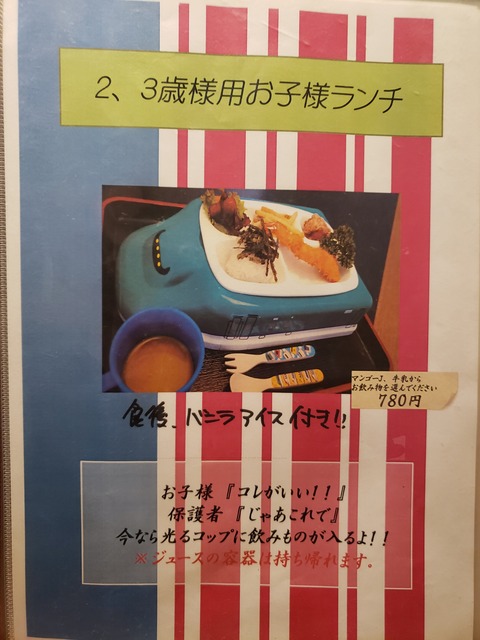 2、3歳様用お子様ランチ
マンゴーJ、牛乳から
お飲み物を選んでください
780円
食後、バニラアイス付き!!
お子様『コレがいい！！』
保護者『じゃあこれで』
今なら光るコップに飲みものが入るよ！！
※ジュースの容器は持ち帰れます。